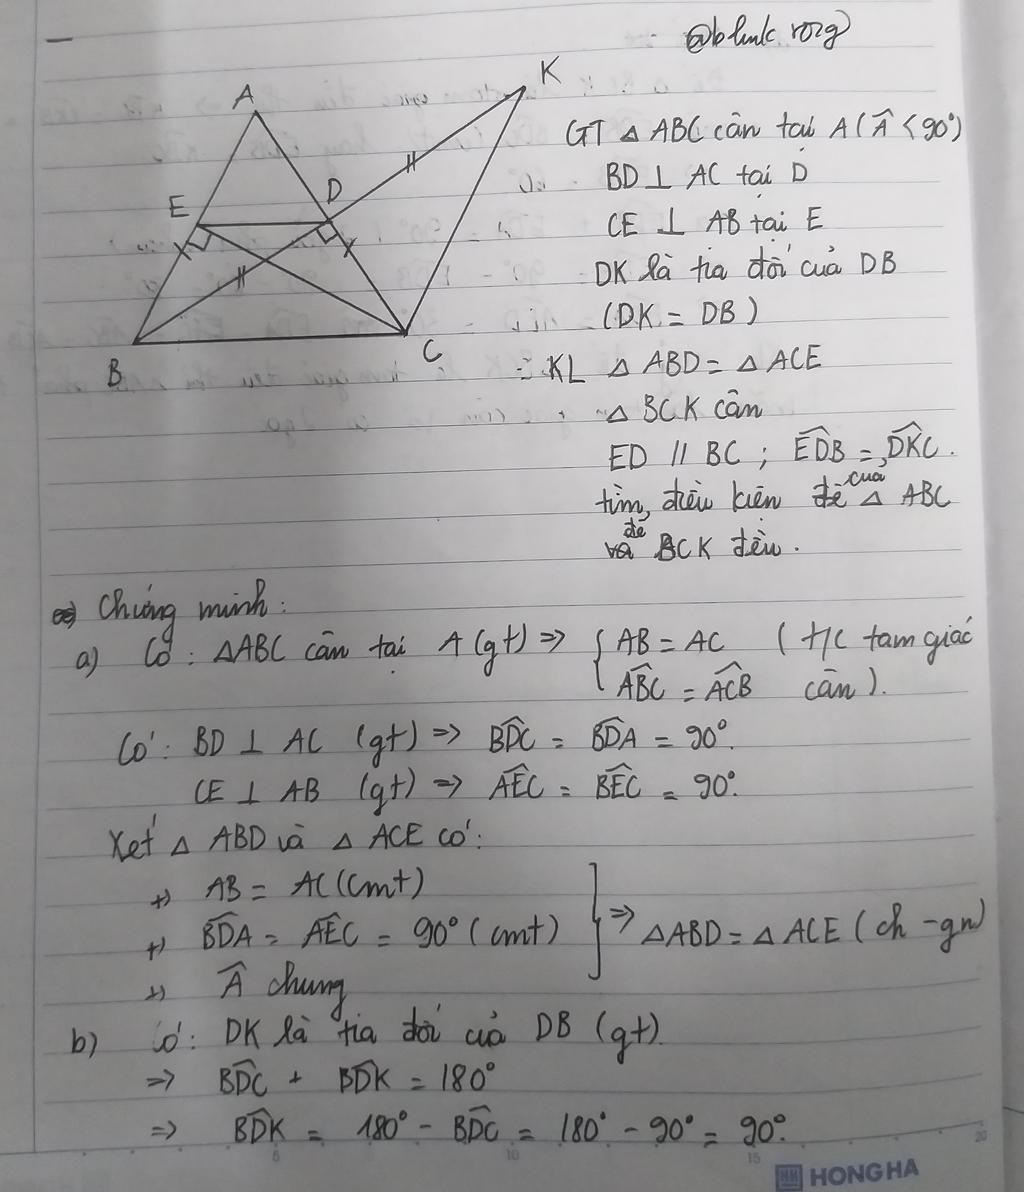 @blink rozg
A
K
E
D
B
C
GT △ ABC cân tại A (Â < 90°)
BD ⊥ AC tại D
CE ⊥ AB tại E
DK là tia đối của DB
(DK = DB)
KL △ ABD = △ ACE
△ BCK cân
ED // BC ; EDB̂ = DKĈ.
tìm điều kiện để của △ ABC
để BCK đều.
Chứng minh:
a) Có : △ABC cân tại A (gt) => { AB = AC ( t/c tam giác
ABĈ = ACB̂ cân ).
Có: BD ⊥ AC (gt) => BDĈ = BDÂ = 90°.
CE ⊥ AB (gt) => AEĈ = BEĈ = 90°.
Xét △ ABD và △ ACE có:
+) AB = AC (cmt)
+) BDÂ = AEĈ = 90° (cmt) } => △ABD = △ ACE ( ch - gn)
+) Â chung
b) Có: DK là tia đối của DB (gt).
=> BDĈ + BDK̂ = 180°
=> BDK̂ = 180° - BDĈ = 180° - 90° = 90°.
5 10 15 20
HH HONG HA